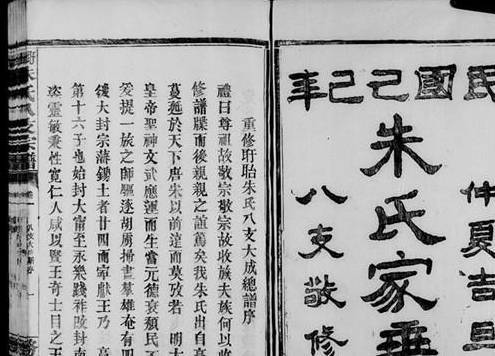 民國己巳年
仲夏吉旦
朱氏家乘
八支敬修
重修盱眙朱氏八支大成總譜序
禮曰尊祖故敬宗敬宗故收族夫族何以收
修譜牒而後親親之誼篤矣我朱氏出自
蔓延於天下唐宋以前遠而莫攷者 明
皇帝聖神文武應運而生當元德衰頹民
愛提一族之師驅逐胡虜掃羣雄奄有四
大封宗藩錫土者廿四而寧獻王乃
第十六子也始封大甯至永樂踐祚改封南
姿靈敏秉性寬仁人咸以賢王奇士目之王
朱氏八支宗譜